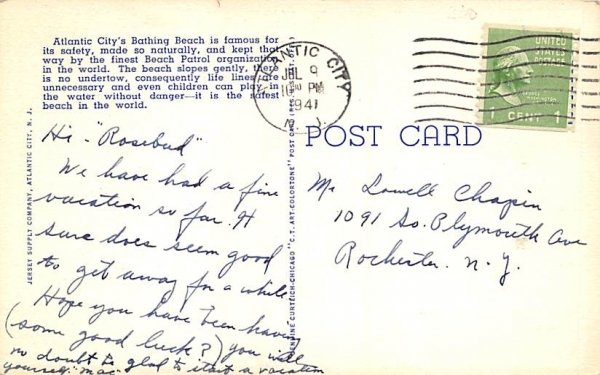 Atlantic City's Bathing Beach is famous for
its safety, made so naturally, and kept that
way by the finest Beach Patrol organization
in the world. The beach slopes gently, there
is no undertow, consequently life lines are
unnecessary and even children can play in
the water without danger—it is the safest
beach in the world.
Hi - "Rosebud"
We have had a fine
vacation so far. It
sure does seem good
to get away for a while
Hope you have been having
(some good luck?) you will
no doubt be glad to start a vacation
yourself. "Mac"
JERSEY SUPPLY COMPANY, ATLANTIC CITY, N. J.
GENUINE CURTEICH-CHICAGO "C.T. ART-COLORTONE" POST CARD
ATLANTIC CITY
JUL 9
PM
1941
N. J.
UNITED
STATES
POSTAGE
1 CENT 1
POST CARD
Mr. Lowell Chapin
1091 So. Plymouth Ave
Rochester. N.Y.